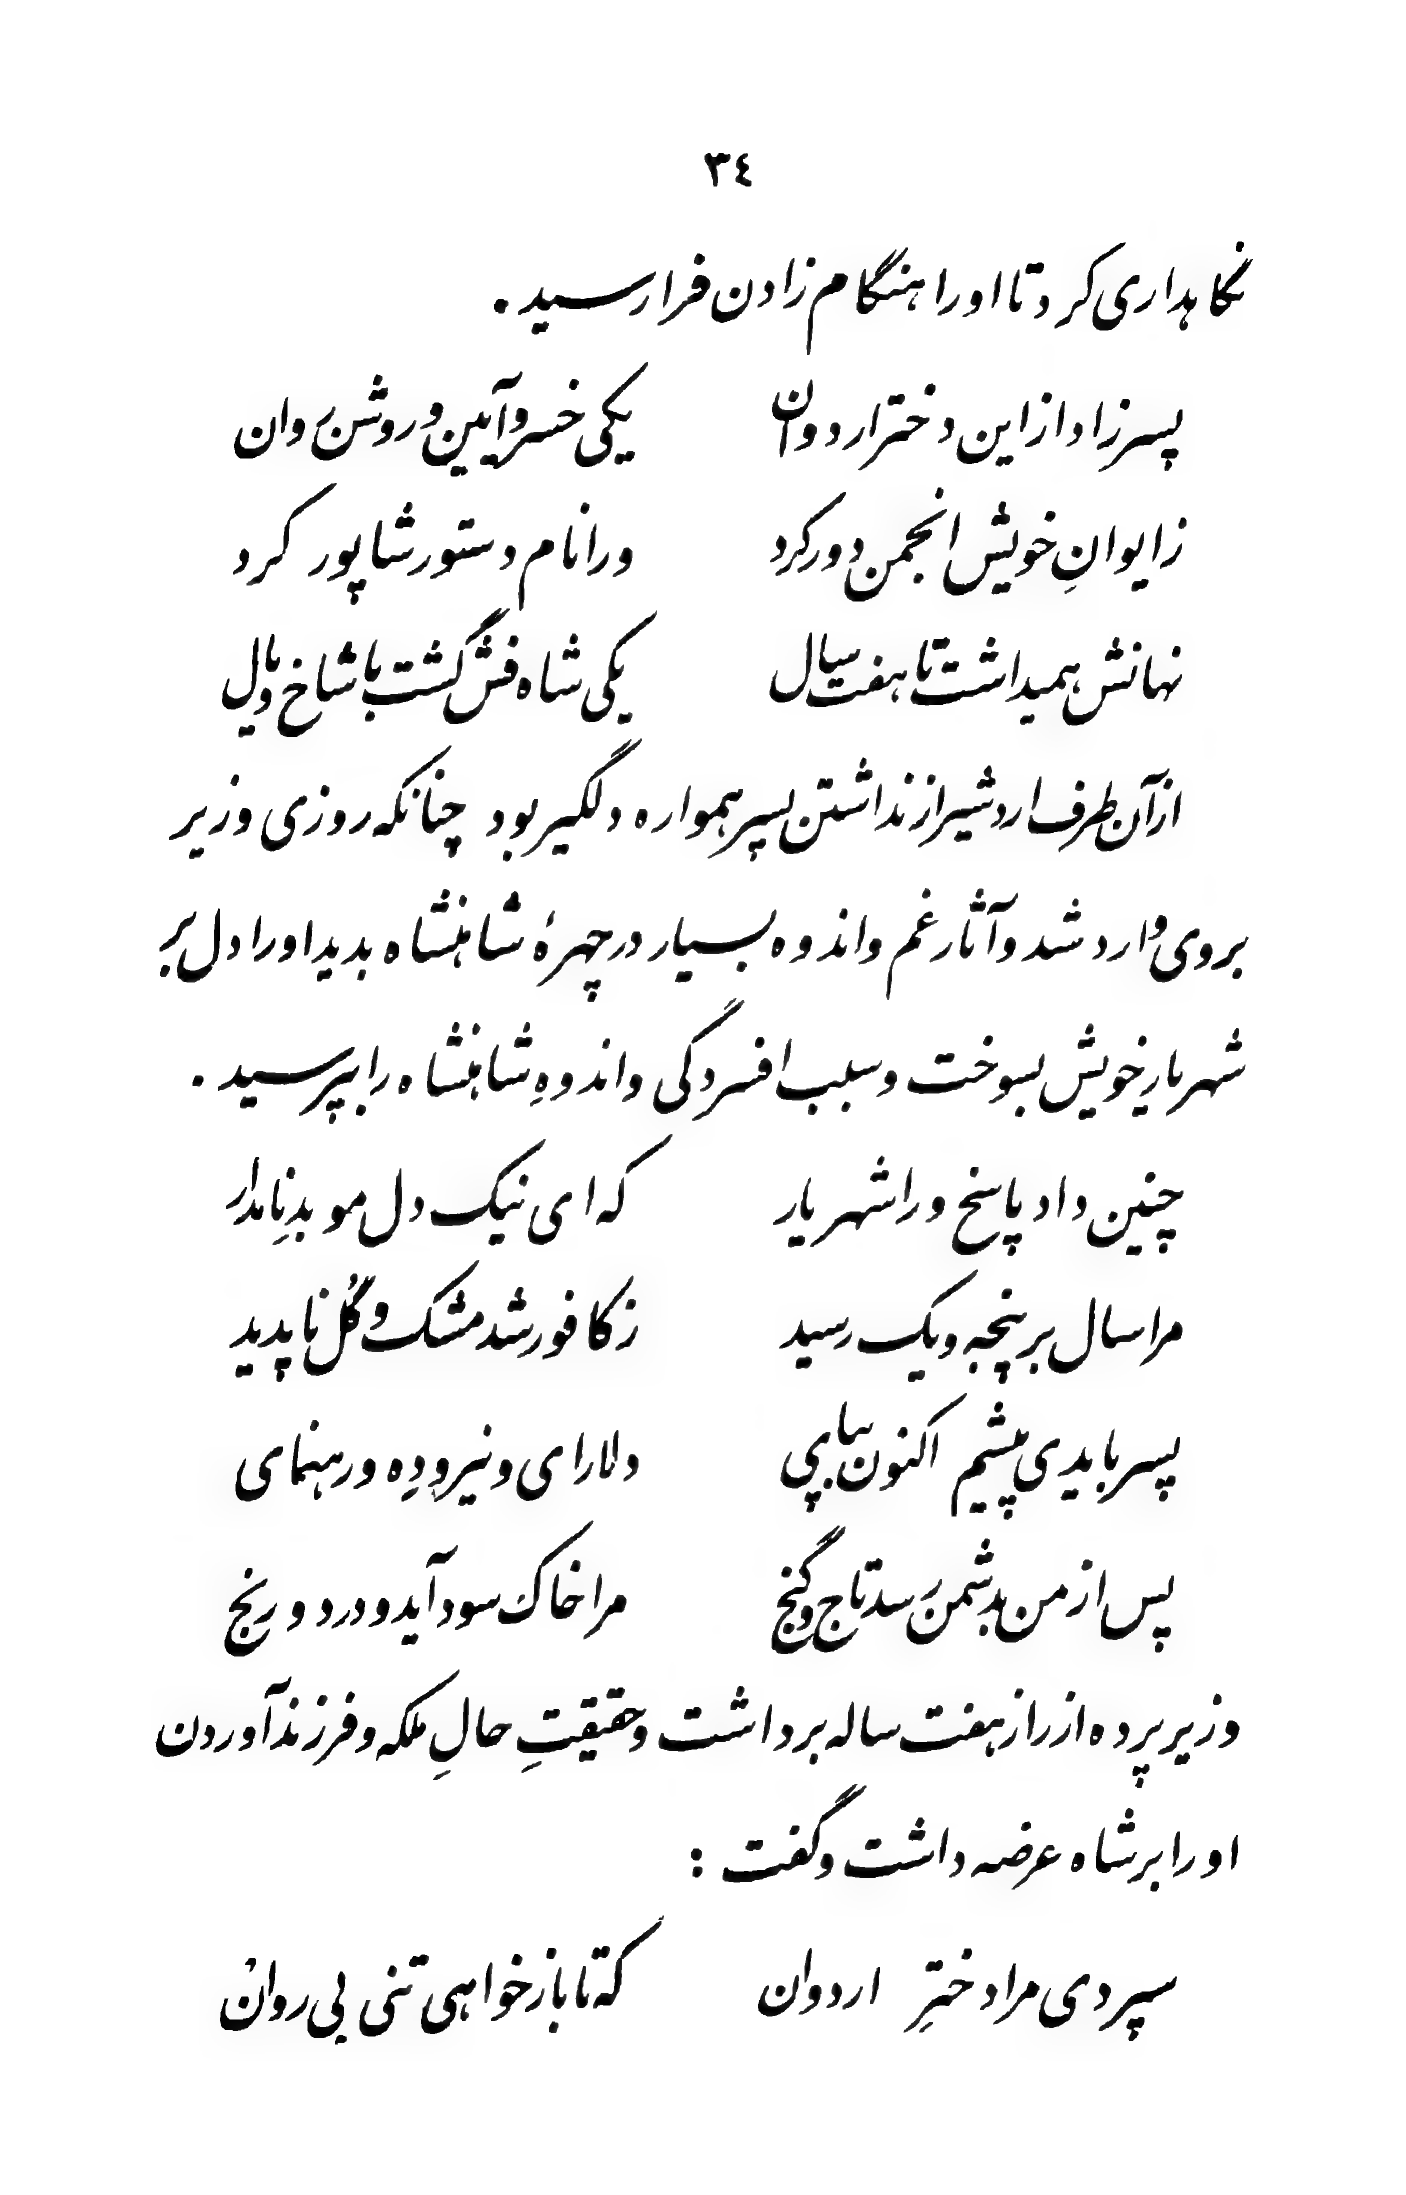 ٣٤
نگاهداری کرد تا او را هنگام زادن فرا رسید .
پسر زاد از این دختر اردوان یکی خسرو آیین و روشن روان
ز ایوانِ خویش انجمن دور کرد ورا نام دستور شاپور کرد
نهانش همیداشت تا هفت سال یکی شاه فش گشت با شاخ و یال
از آن طرف اردشیر از نداشتن پسر همواره دلگیر بود چنانکه روزی وزیر
بروی وارد شد و آثار غم و اندوه بسیار در چهرۀ شاهنشاه بدید او را دل بر
شهریارِ خویش بسوخت و سبب افسردگی و اندوهِ شاهنشاه را بپرسید .
چنین داد پاسخ ورا شهریار که ای نیک دل موبدِ نامدار
مرا سال بر پنجه و یک رسید ز کافور شد مشک و گُل ناپدید
پسر بایدی پیشم اکنون بپای دلارای و نیرودِه و رهنمای
پس از من بدشمن رسد تاج و گنج مرا خاک سود آید و درد و رنج
وزیر پرده از راز هفت ساله برداشت و حقیقتِ حالِ ملکه و فرزند آوردن
او را بر شاه عرضه داشت و گفت :
سپردی مرا دخترِ اردوان که تا باز خواهی تنی بی روان